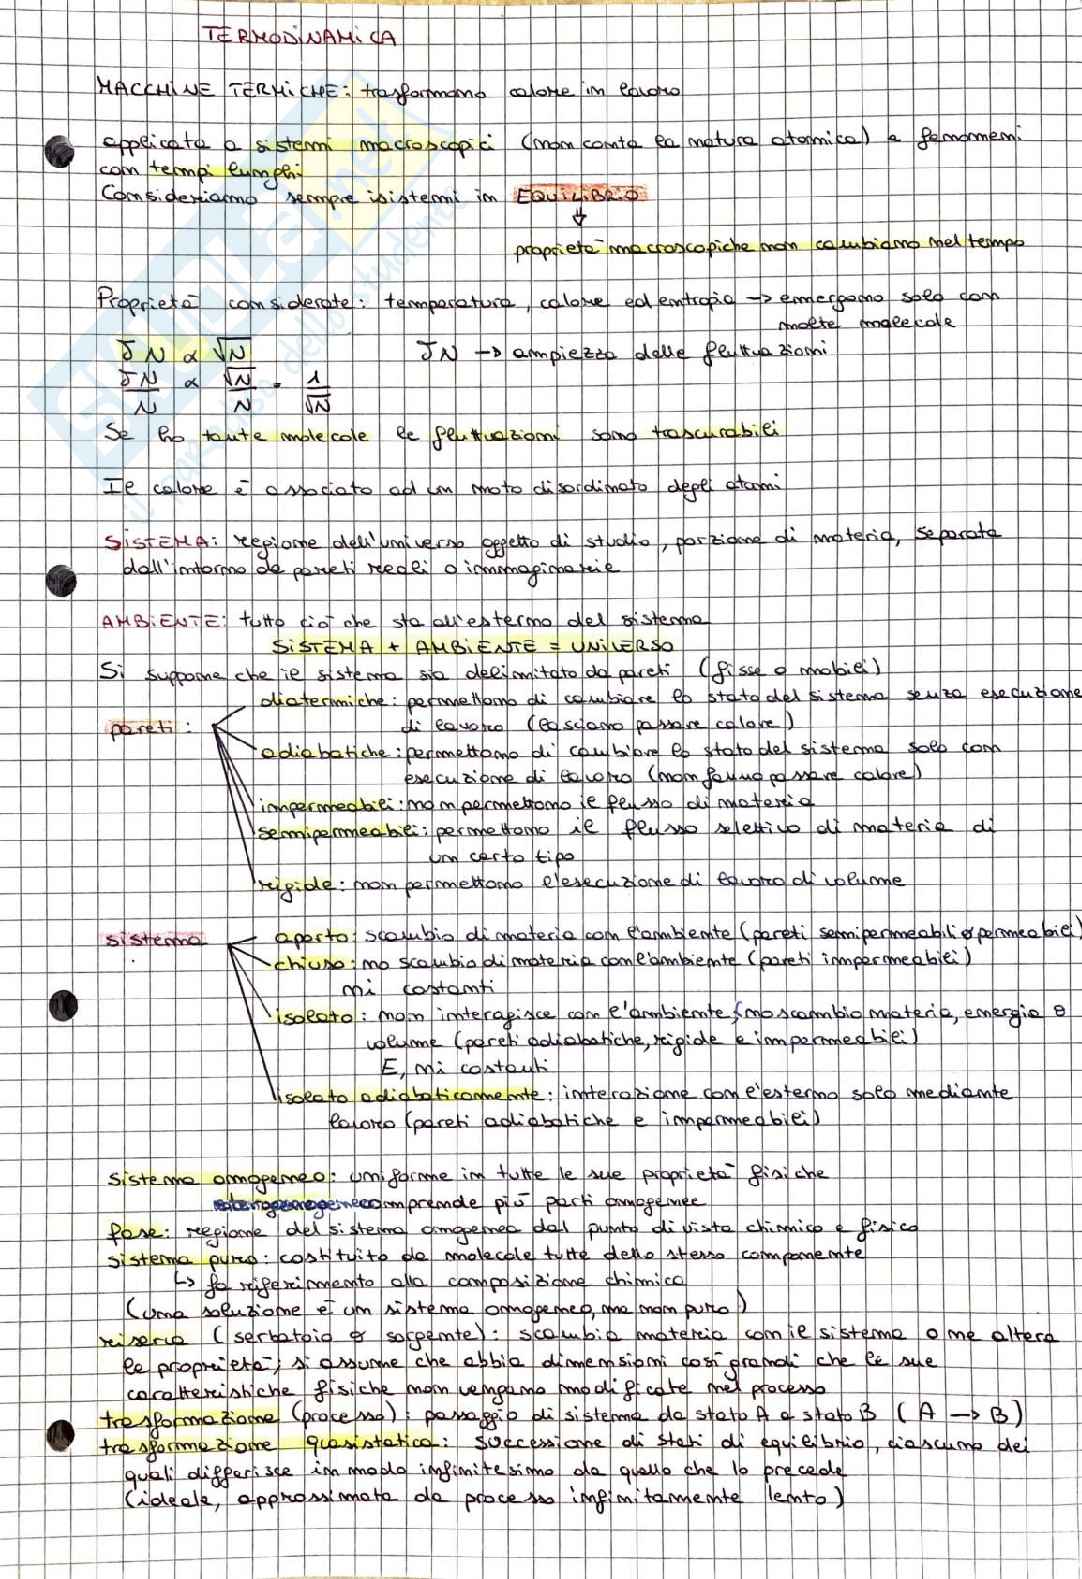 TERMODINAMICA
MACCHINE TERMICHE: trasformano calore in lavoro
applicata a sistemi macroscopici (non conta la natura atomica) e fenomeni
con tempi lunghi
Consideriamo sempre i sistemi in EQUILIBRIO
↓
proprietà macroscopiche non cambiano nel tempo
Proprietà considerate: temperatura, calore ed entropia → emergono solo con
molte molecole
δN ∝ √N δN → ampiezza delle fluttuazioni
δN/N ∝ √N/N = 1/√N
Se ho tante molecole le fluttuazioni sono trascurabili
Il calore è associato ad un moto disordinato degli atomi
SISTEMA: regione dell'universo oggetto di studio, porzione di materia, separata
dall'intorno da pareti reali o immaginarie
AMBIENTE: tutto ciò che sta all'esterno del sistema
SISTEMA + AMBIENTE = UNIVERSO
Si suppone che il sistema sia delimitato da pareti (fisse o mobili)
pareti: diatermiche: permettono di cambiare lo stato del sistema senza esecuzione
di lavoro (lasciano passare calore)
adiabatiche: permettono di cambiare lo stato del sistema solo con
esecuzione di lavoro (non fanno passare calore)
impermeabili: non permettono il flusso di materia
semipermeabili: permettono il flusso selettivo di materia di
un certo tipo
rigide: non permettono l'esecuzione di lavoro di volume
sistema aperto: scambio di materia con l'ambiente (pareti semipermeabili o permeabili)
chiuso: no scambio di materia con l'ambiente (pareti impermeabili)
ni costanti
isolato: non interagisce con l'ambiente, (no scambio materia, energia e
volume (pareti adiabatiche, rigide e impermeabili)
E, ni costanti
isolato adiabaticamente: interazione con l'esterno solo mediante
lavoro (pareti adiabatiche e impermeabili)
sistema omogeneo: uniforme in tutte le sue proprietà fisiche
eterogeneo comprende più parti omogenee
fase: regione del sistema omogenea dal punto di vista chimico e fisico
sistema puro: costituito da molecole tutte dello stesso componente
↳ fa riferimento alla composizione chimica
(una soluzione è un sistema omogeneo, ma non puro)
riserva (serbatoio o sorgente): scambia materia con il sistema o ne altera
le proprietà; si assume che abbia dimensioni così grandi che le sue
caratteristiche fisiche non vengano modificate nel processo
trasformazione (processo): passaggio di sistema da stato A a stato B (A → B)
trasformazione quasistatica: successione di stati di equilibrio, ciascuno dei
quali differisce in modo infinitesimo da quello che lo precede
(ideale, approssimata da processo infinitamente lento)